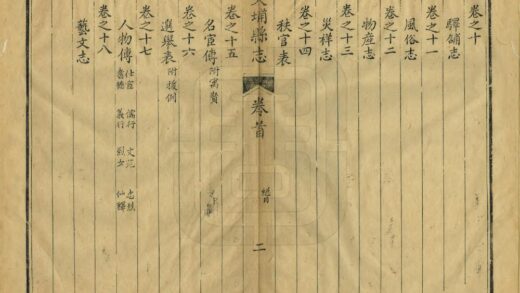 卷之十
驛鋪志
卷之十一
風俗志
卷之十二
物産志
卷之十三
災祥志
卷之十四
秩官表
大埔縣志
卷首
總目
二
卷之十五
名宦傳附寓賢
卷之十六
選舉表附援例
卷之十七
人物傳 仕宦 儒行 文苑 忠烈
耆德 義行 烈女 仙釋
卷之十八
藝文志